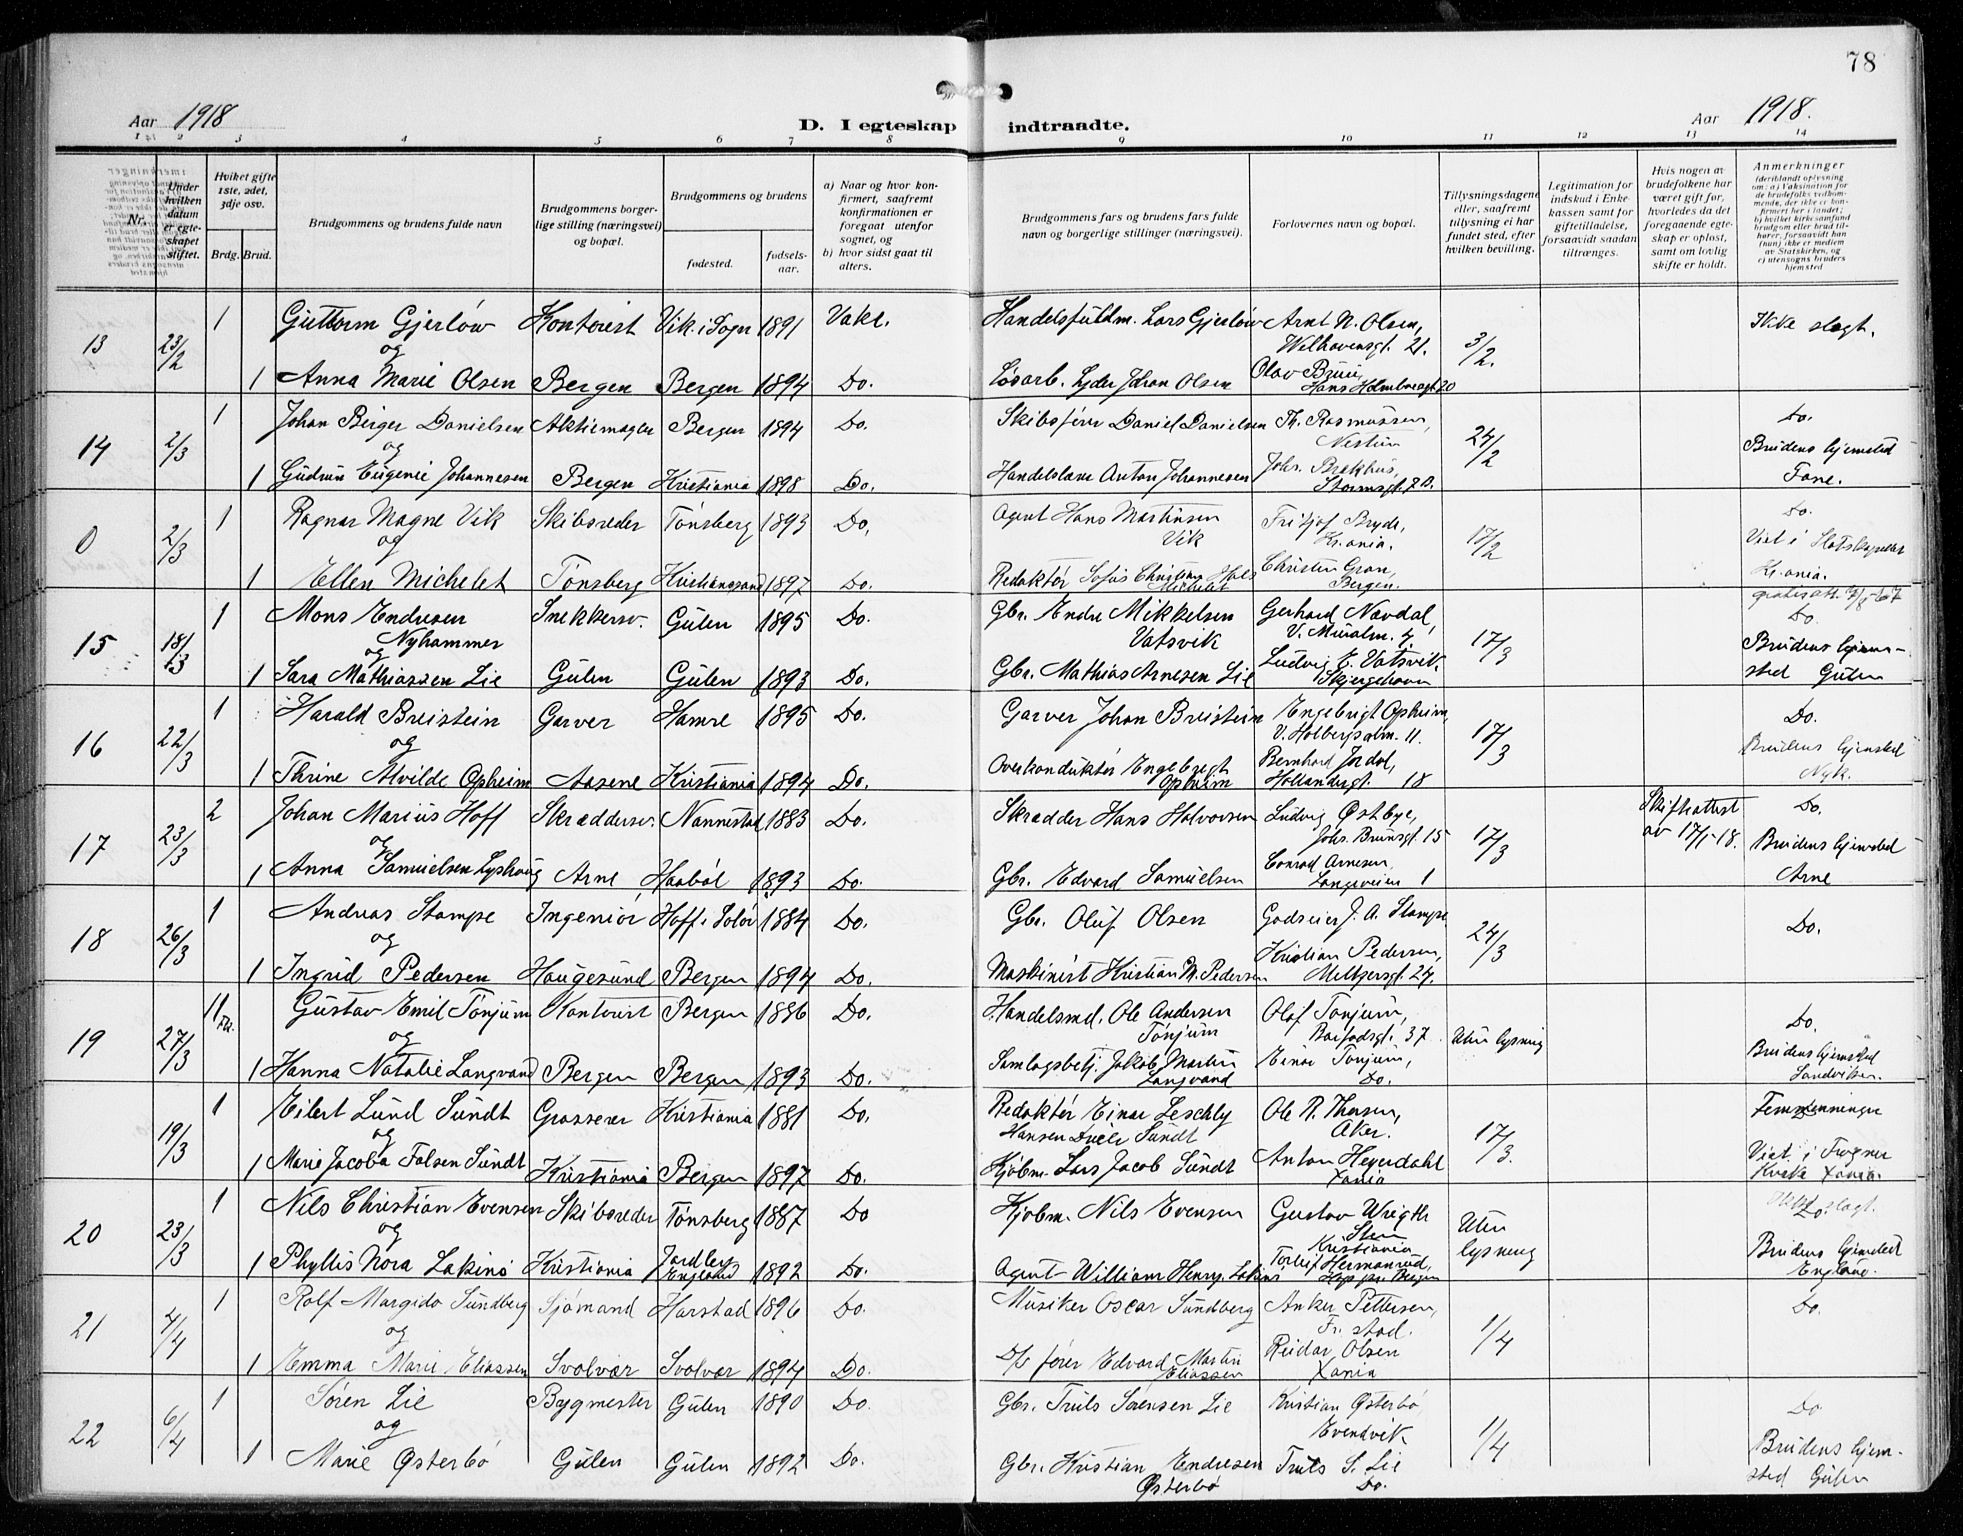 78
Aar 1918
D. I egteskap indtraadte.
Aar 1918.
1 2 3 4 5 6 7 8 9 10 11 12 13 14
Nr.
Under hvilken datum er egteskapet stiftet.
Hviket gifte 1ste, 2det, 3dje osv.
Brdg. Brud.
Brudgommens og brudens fulde navn
Brudgommens borgerlige stilling (næringsvei) og bopæl.
Brudgommens og brudens
fødested.
fødselsaar.
a) Naar og hvor konfirmert, saafremt konfirmationen er foregaat utenfor sognet, og
b) hvor sidst gaat til alters.
Brudgommens fars og brudens fars fulde navn og borgerlige stillinger (næringsvei).
Forlovernes navn og bopæl.
Tillysningsdagene eller, saafremt tillysning ei har fundet sted, efter hvilken bevilling.
Legitimation for indskud i Enkekassen samt for giftetilladelse, forsaavidt saadan tiltrænges.
Hvis nogen av brudefolkene har været gift før, hvorledes da det foregaaende egteskap er opløst, samt om lovlig skifte er holdt.
Anmerkninger
(deriblandt oplysning om: a) Vaksination for de brudefolks vedkommende, der ikke er konfirmert her i landet; b) hvilket kirkesamfund brudgom eller brud tilhører, forsaavidt han (hun) ikke er medlem av Statskirken, og c) utensogns bruders hjemsted
13 23/2 1 Guttorm Gjerløw Kontorist Vik i Sogn 1891 Vakc. Handelsfuldm. Lars Gjerløw Arnt N. Olsen, Welhavensgt. 21. 3/2. Ikke slegt.
og
1 Anna Marie Olsen Bergen Bergen 1894 Do. Løsarb. Lyder Johan Olsen Olav Bruu, Hans Holmboesgt 20
14 2/3 1 Johan Birger Danielsen Aktiemegler Bergen 1894 Do. Skibsfører Daniel Danielsen Th. Rasmussen, Nestun 24/2 Do.
og
1 Gudrun Eugenie Johannesen Bergen Kristiania 1898 Do. Handelslære Anton Johannesen Johs. Brekhus, Stormsgt. 20. Brudens hjemsted Fane.
0 2/3 1 Ragnar Magne Vik Skibsreder Tønsberg 1893 Do. Agent Hans Martinsen Vik Fritjof Bryde, Kr.ania. 17/2 Do.
og
1 Ellen Michelet Tønsberg Kristiansand 1897 Do. Redaktør Sofus Christian Michelet Christen Gran, Bergen. Viet i Slotskapellet Kr.ania.
15 18/3 1 Mons Endresen Nyhammer Snekkersv. Gulen 1895 Do. Gbr. Endre Mikkelsen Vatsvik Gerhard Navdal, V. Muralm. 7. 17/3 Do.
og
1 Sara Mathiassen Lie Gulen Gulen 1893 Do. Gbr. Mathias Arnesen Lie Ludvig E. Vatsvik, Skjergehavn Brudens hjemsted Gulen
16 22/3 1 Harald Breistein Garver Hamre 1895 Do. Garver Johan Breistein Engebrigt Opheim, V. Holbergsalm. 11. 17/3 Do.
og
1 Thrine Alvilde Opheim Aasene Kristiania 1894 Do. Overkonduktør Engebregt Opheim Bernhard Jordal, Hollendergt. 18 Brudens hjemsted Nyk.
17 23/3 2 Johan Marius Hoff Skræddersv. Nannestad 1883 Do. Skrædder Hans Halvorsen Ludvig Østbye, Johs. Brunsgt. 15 17/3 Skifteattest av 17/1-18. Do.
og
1 Anna Samuelsen Lyshaug Arne Haabøl 1893 Do. Gbr. Edvard Samuelsen Conrad Arnesen, Langeveien 1 Brudens hjemsted Arne
18 26/3 1 Andreas Stampe Ingeniør Hoff i Solør 1884 Do. Gbr. Oluf Olsen Godseier J. A. Stampe 24/3 Do.
og
1 Ingrid Pedersen Haugesund Bergen 1894 Do. Maskinist Kristian M. Pedersen Kristian Pedersen, Meltzersgt. 27.
19 27/3 1 Gustav Emil Tønjum Kontorist Bergen 1886 Do. Handelsmd. Ole Andersen Tønjum Olaf Tønjum, Baifodsgt. 37 Uten lysning Do.
og
1 Hanna Natalie Langvand Bergen Bergen 1893 Do. Samlagsbetj. Jakob Martin Langvand Einar Tønjum, Do. Brudens hjemsted Sandviken.
19/3 1 Eilert Lund Sundt Grosserer Kristiania 1881 Do. Redaktør Einar Leschly Hansen Sundt Ole R. Thorsen, Aker. 17/3. Femmenninger
og
1 Marie Jacoba Falsen Sundt Kristiania Bergen 1897 Do. Kjøbm. Lars Jacob Sundt Anton Heyerdahl Xania Viet i Frogner Kirke Xania.
20 23/3 1 Nils Christian Evensen Skibsreder Tønsberg 1887 Do Kjøbm. Nils Evensen Gustav Wrigth Sten Kristiania Uten lysning Ikke slegt.
og
1 Phyllis Nora Lakins Kristiania Jardley England 1892 Do. Agent William Henry Lakins Torleif Hermanrud, Bergen Brudens hjemsted England.
21 4/4 1 Rolf Margido Sundberg Sjømand Harstad 1896 Do. Musiker Oscar Sundberg Anker Pettersen, Fr.stad. 1/4 Do.
og
1 Emma Marie Eliassen Svolvær Svolvær 1894 Do. D/s fører Edvard Martin Eliassen Reidar Olsen Xania
22 6/4 1 Søren Lie Bygmester Gulen 1890 Do. Gbr. Truls Sørensen Lie Kristian Østerbø, Evendvik 1/4 Do
og
1 Marie Østerbø Gulen Gulen 1892 Do. Gbr. Kristian Endresen Østerbø Truls S. Lie Do. Brudens hjemsted Gulen